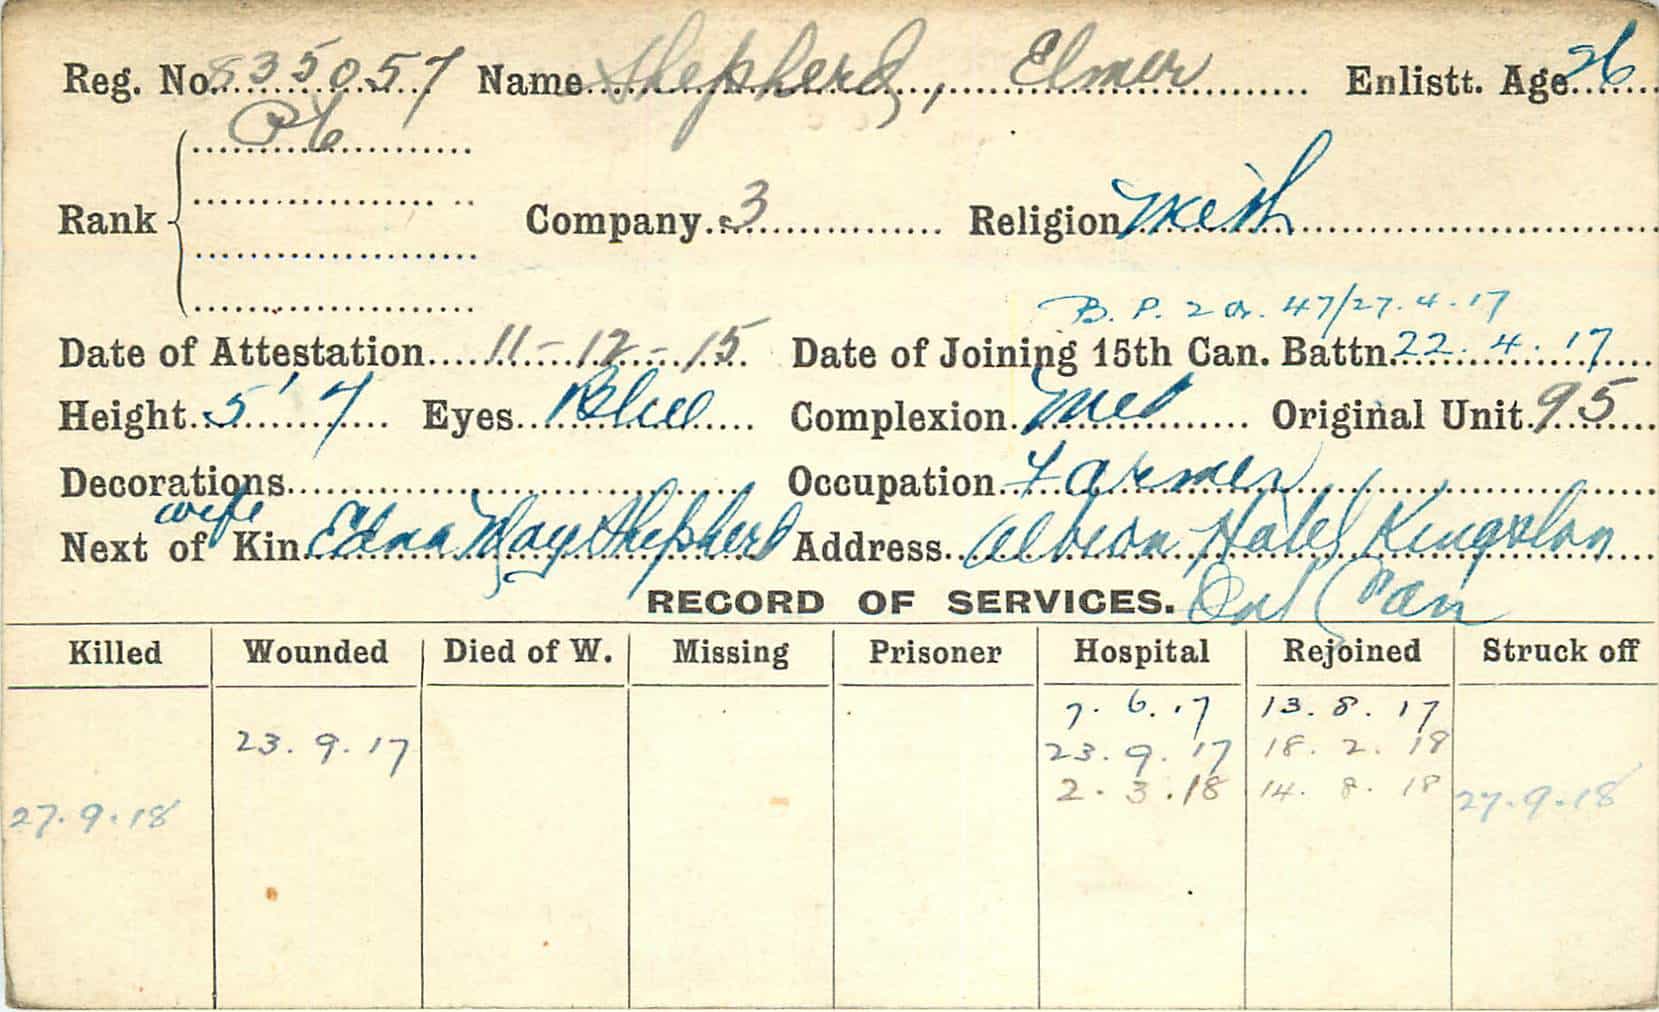 Reg. No. 835057 Name Shepherd, Elmer Enlistt. Age 26
Pte
Rank Company 3 Religion Meth
B. P. 2 Or. 47/27.4.17
Date of Attestation 11-12-15 Date of Joining 15th Can. Battn. 22.4.17
Height 5'7 Eyes Blue Complexion Med Original Unit 95
Decorations Occupation Farmer
wife
Next of Kin Edna May Shepherd Address Albion Hotel Kingston
RECORD OF SERVICES. Ont Can
Killed Wounded Died of W. Missing Prisoner Hospital Rejoined Struck off
7.6.17 13.8.17
23.9.17 23.9.17 18.2.18
2.3.18 14.8.18
27.9.18 27.9.18